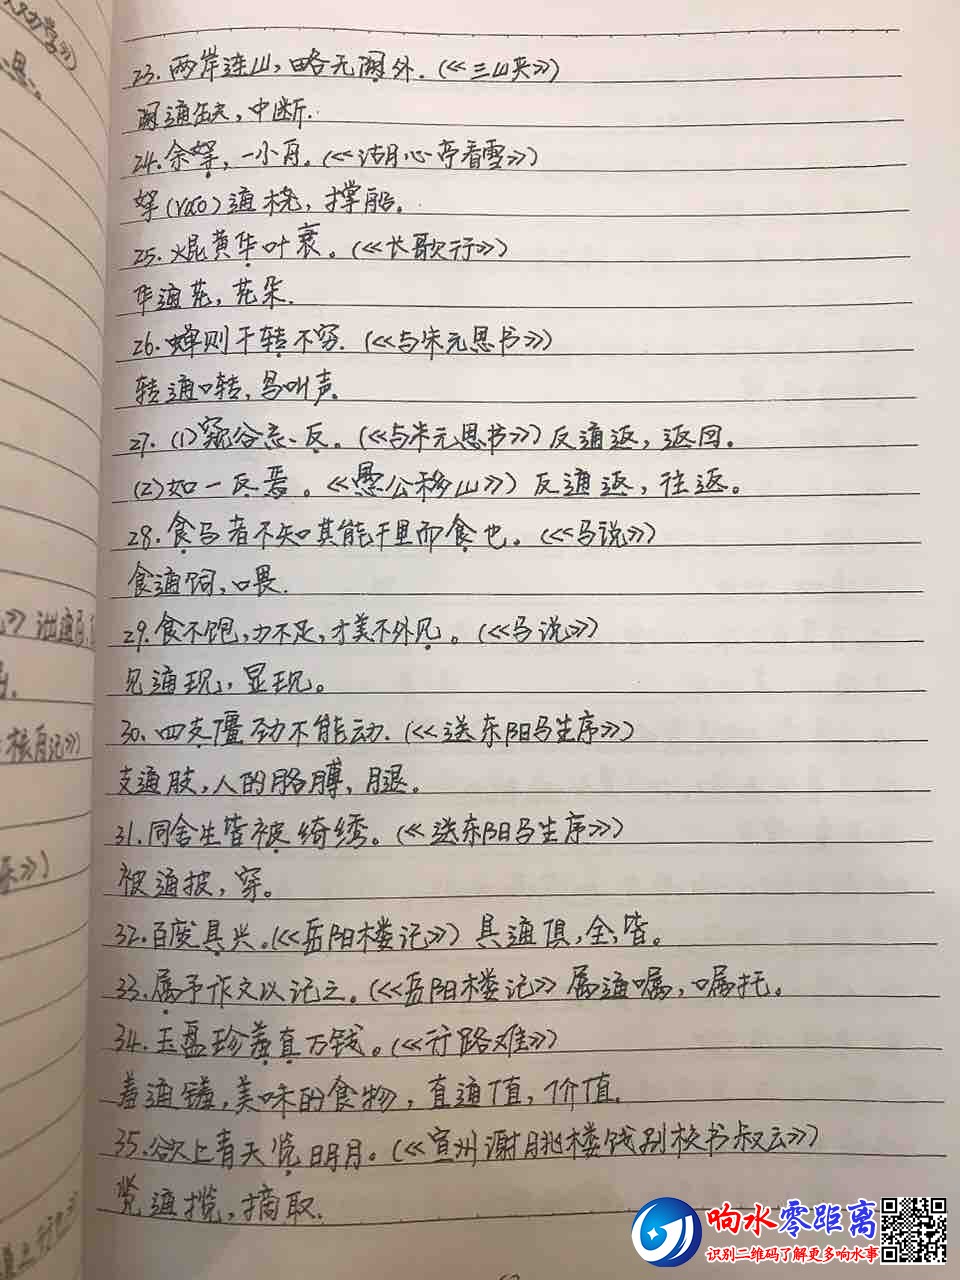 23.两岸连山，略无阙处.(《三峡》)
阙通缺，中断.
24.余拏，一小舟。(《湖心亭看雪》)
拏(rao)通桡，撑船。
25.焜黄华叶衰。(《长歌行》)
华通花，花朵.
26.蝉则千转不穷.(《与朱元思书》)
转通啭，鸟叫声
27.(1)窥谷忘反。(《与朱元思书》)反通返，返回。
(2)如一反焉。《愚公移山》)反通返，往返。
28.食马者不知其能千里而食也。(《马说》)
食通饲，喂.
29.食不饱，力不足，才美不外见。(《马说》)
见通现，显现。
30.四支僵劲不能动.(《送东阳马生序》)
支通肢，人的胳膊，腿。
31.同舍生皆被绮绣。(《送东阳马生序》)
被通披，穿。
32.百废具兴.(《岳阳楼记》)具通俱，全，皆。
33.属予作文以记之。(《岳阳楼记》属通嘱，嘱托。
34.玉盘珍羞直万钱。(《行路难》)
羞通馐，美味的食物，直通值，价值.
35.欲上青天览明月。(《宣州谢朓楼饯别校书叔云》)
览通揽，摘取.
响水零距离
识别二维码了解更多响水事